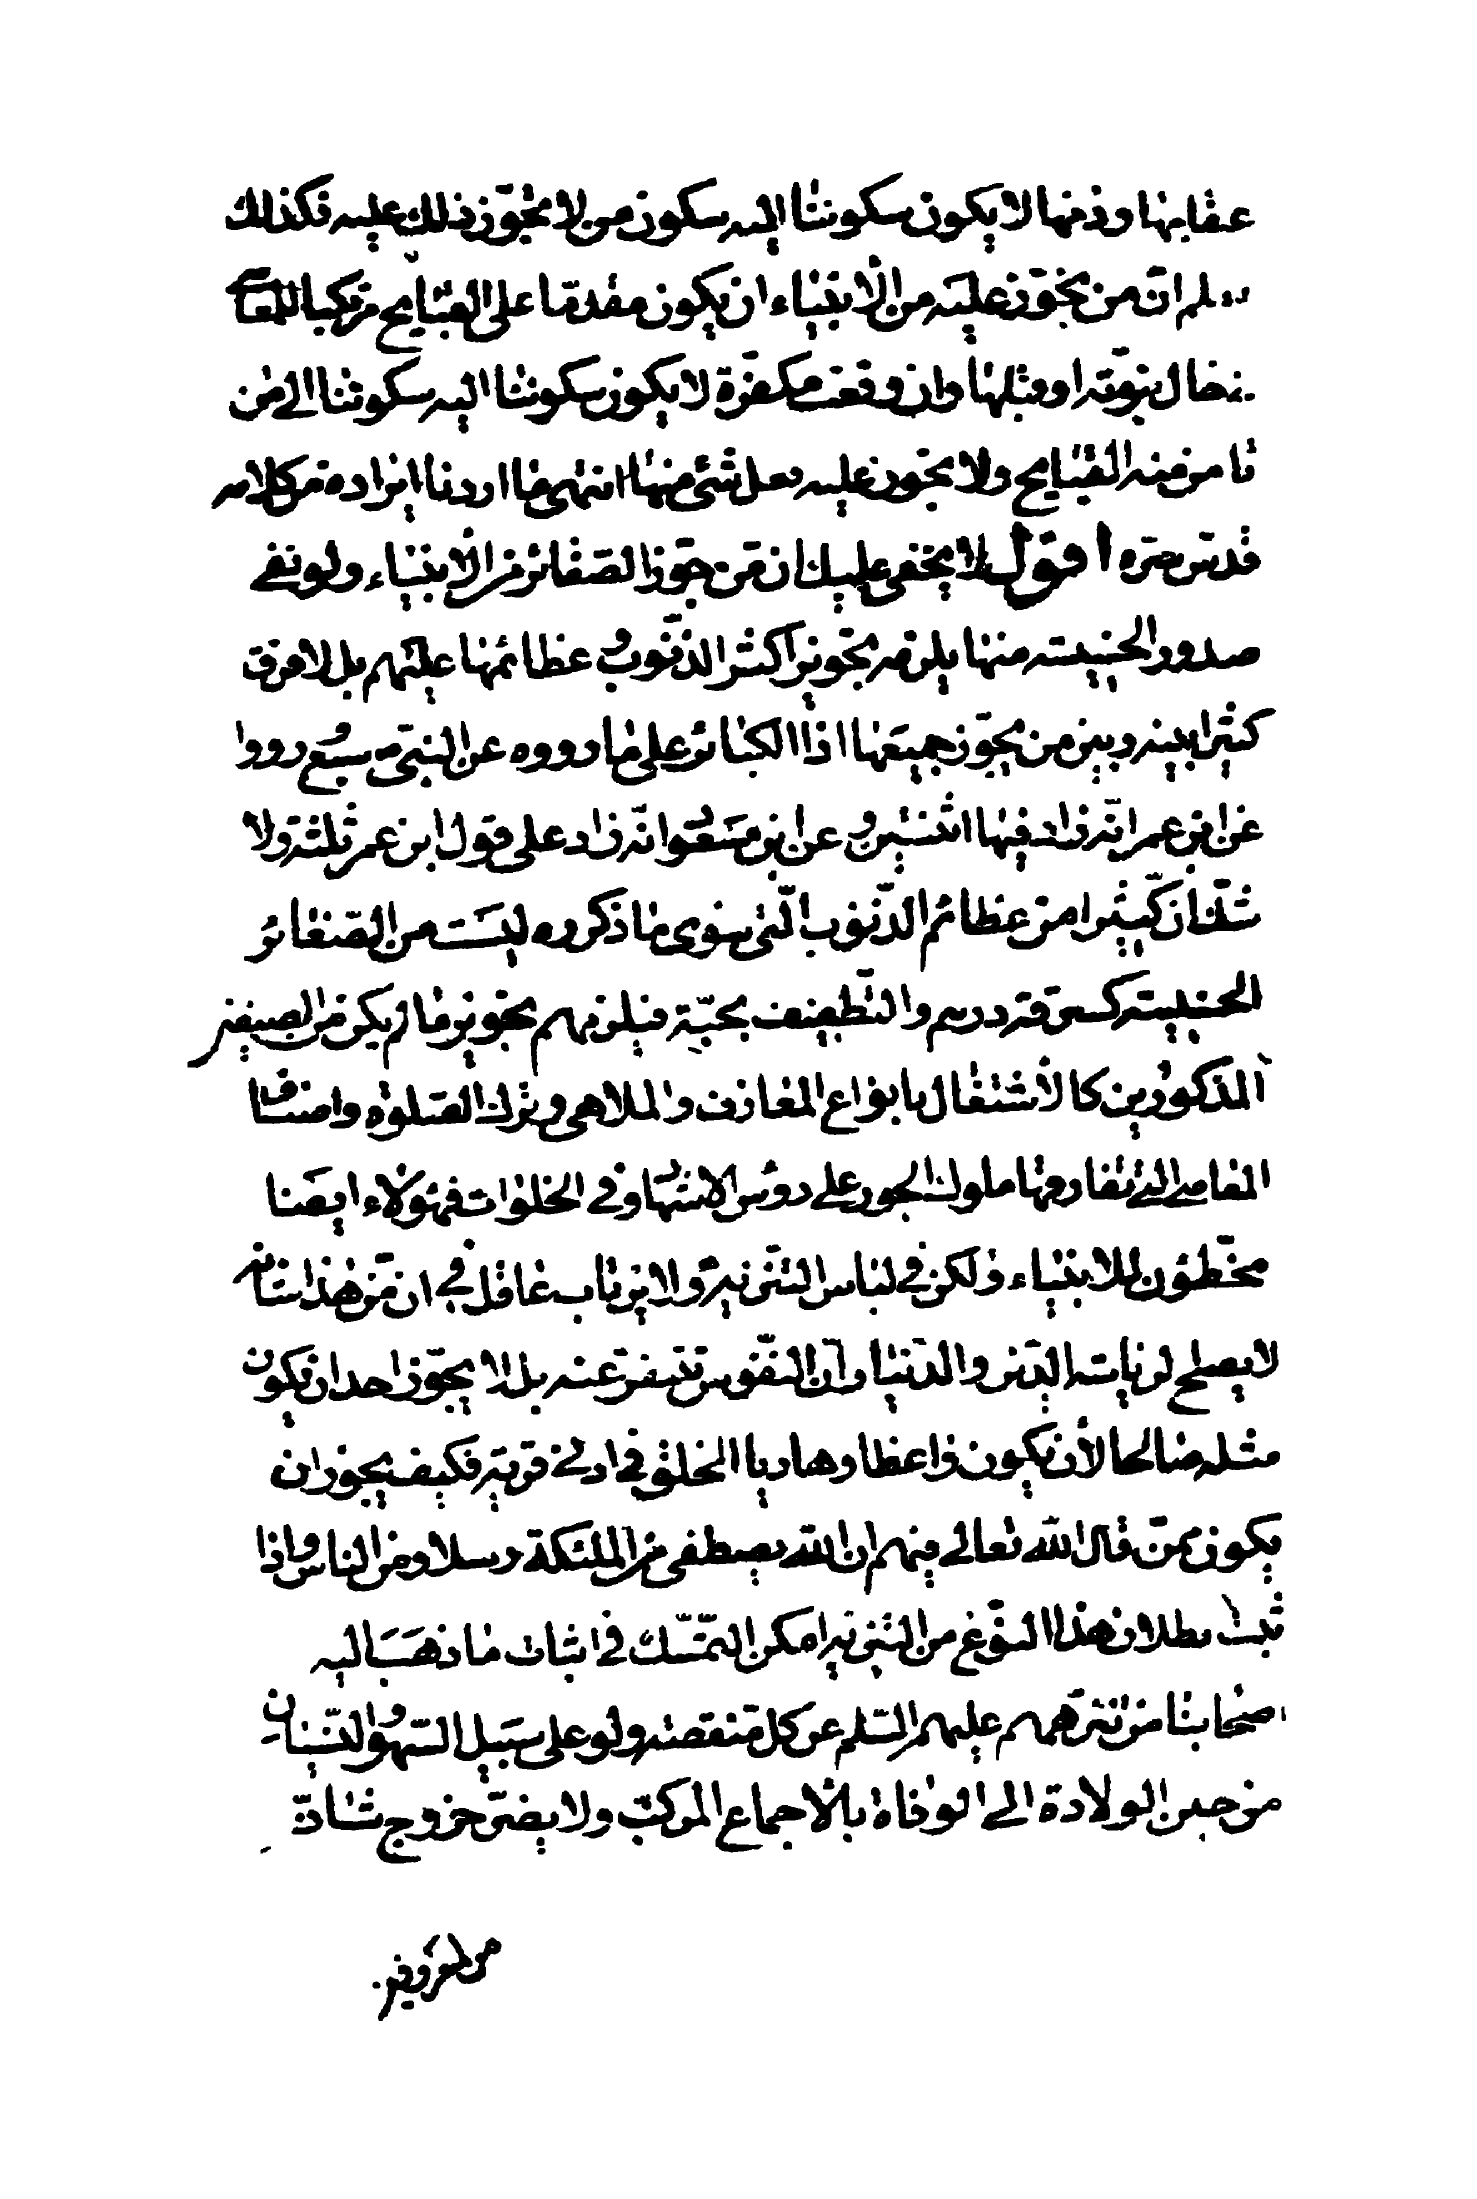 عقابها وذمها لا يكون سكوننا اليه سكون من لا يجوز ذلك عليه فكذلك
نعلم ان من يجوز عليه من الأنبياء ان يكون مقدما على القبايح مرتكبا للمعاصي
في حال نبوته او قبلها وان وقعت مكفرة لا يكون سكوننا اليه سكوننا الى من
نامن منه القبايح ولا يجوز عليه فعل شئ منها انتهى ما اردنا ايراده من كلامه
قدس سره اقول لا يخفى عليك ان من جوز الصغائر من الأنبياء ولو نفى
صدور الخسيسة منها يلزمه تجويز اكثر الذنوب وعظائمها عليهم بل لا فرق
كثيرا بينه وبين من يجوز جميعها اذ الكبائر على ما رووه عن النبي ص سبع ورووا
عن ابن عمر انه زاد فيها اثنتين وعن ابن مسعود انه زاد على قول ابن عمر ثلثة ولا
شك ان كثيرا من عظائم الذنوب التي سوى ما ذكروه ليست من الصغائر
الخسيسة كسرقة درهم والتطفيف بحبة فيلزمهم تجويز ما لم يكن من الصنفين
المذكورين كالأشتغال بانواع المعازف والملاهي وترك الصلوة واصناف
المعاصي التي تقارفها ملوك الجور على رؤس الاشهاد وفي الخلوات فهؤلاء ايضا
مخطئون للانبياء ولكن في لباس التنزيه ولا يرتاب عاقل في ان من هذا شانه
لا يصلح لرياسة الدين والدنيا وان النفوس تتنفر عنه بل لا يجوز احد ان يكون
مثله صالحا لأن يكون واعظا وهاديا للخلق في ادنى قرية فكيف يجوز ان
يكون ممن قال الله تعالى فيهم ان الله يصطفي من الملئكة رسلا ومن الناس واذا
ثبت بطلان هذا النوع من التنزيه امكن التمسك في اثبات ما ذهب اليه
اصحابنا من تنزههم عليهم السلم عن كل منقصة ولو على سبيل السهو والنسيان
من حين الولادة الى الوفاة بالأجماع المركب ولا يضر خروج شاذ
من المعروفين